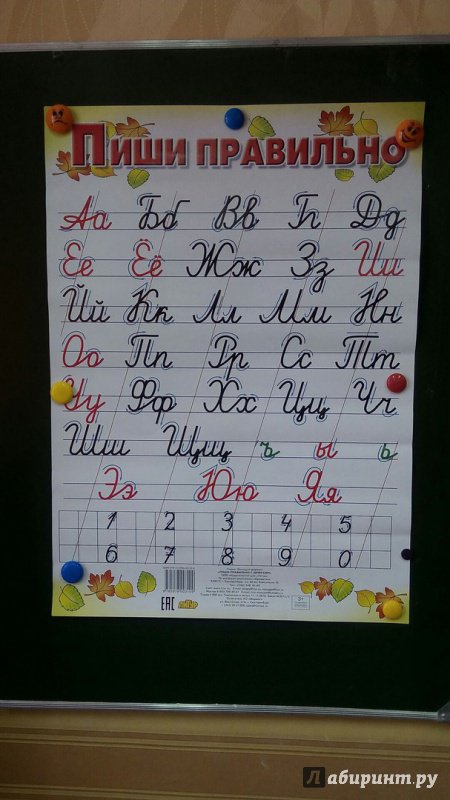 Пиши правильно
Аа Бб Вв Гг Дд
Ее Ёё Жж Зз Ии
Йй Кк Лл Мм Нн
Оо Пп Рр Сс Тт
Уу Фф Хх Цц Чч
Шш Щщ ъ ы ь
Ээ Юю Яя
1 2 3 4 5
6 7 8 9 0
ЕАС
Лабиринт.ру